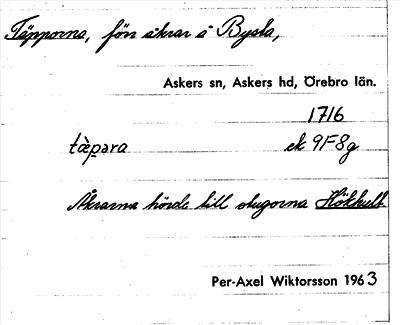 Täpporna, förr åkrar å Bysta,
Askers sn, Askers hd, Örebro län.
1716
tæ̀para ek 9F8g
Åkrarna hörde till stugorna Hökhult
Per-Axel Wiktorsson 1963